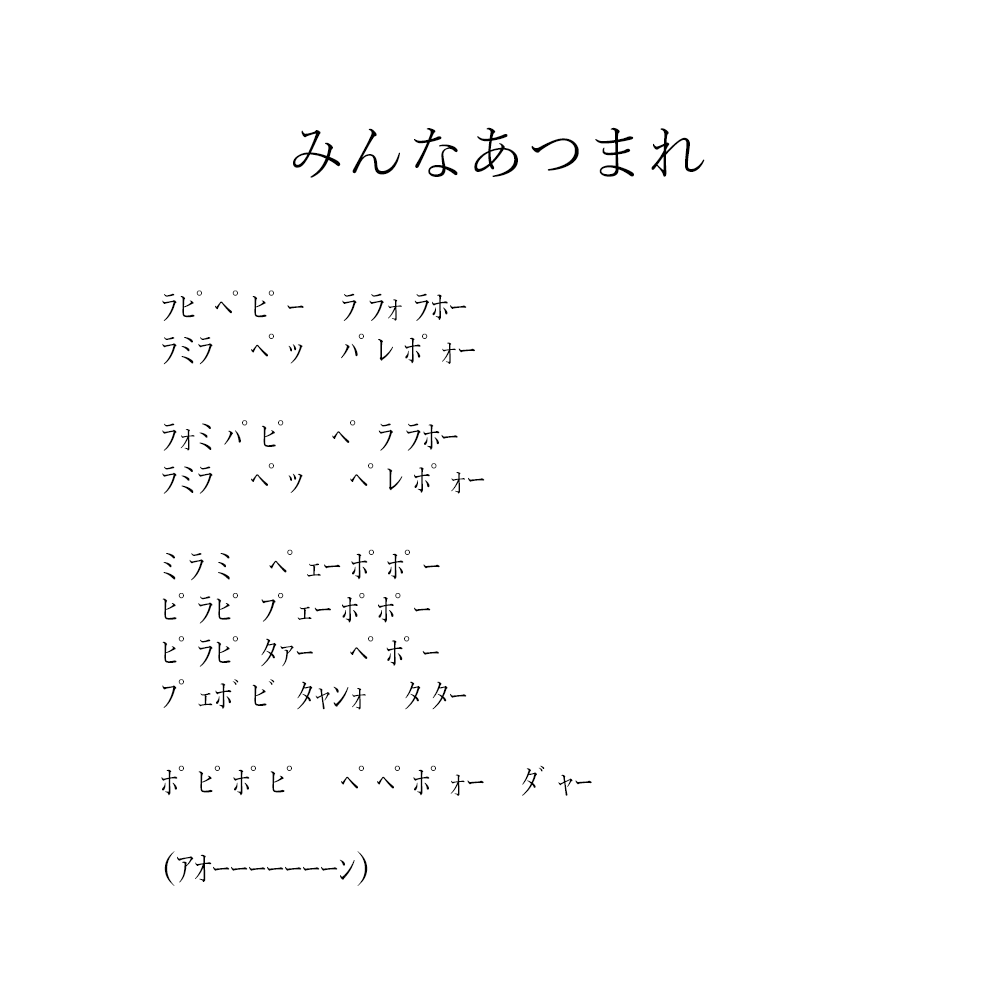 みんなあつまれ
ﾗﾋﾟﾍﾟﾋﾟｰ ﾗﾗｫﾗﾎｰ
ﾗﾐﾗ ﾍﾟｯ ﾊﾟﾚﾎﾟｫｰ
ﾗｫﾐﾊﾟﾋﾟ ﾍﾟﾗﾗﾎｰ
ﾗﾐﾗ ﾍﾟｯ ﾍﾟﾚﾎﾟｫｰ
ﾐﾗﾐ ﾍﾟｪｰﾎﾟﾎﾟｰ
ﾋﾟﾗﾋﾟﾌﾟｪｰﾎﾟﾎﾟｰ
ﾋﾟﾗﾋﾟﾀｧｰ ﾍﾟﾎﾟｰ
ﾌﾟｪﾎﾞﾋﾞﾀｬﾝｫ ﾀﾀｰ
ﾎﾟﾋﾟﾎﾟﾋﾟ ﾍﾟﾍﾟﾎﾟｫｰ ﾀﾞｬｰ
(ｱｵｰｰｰｰｰｰｰﾝ)